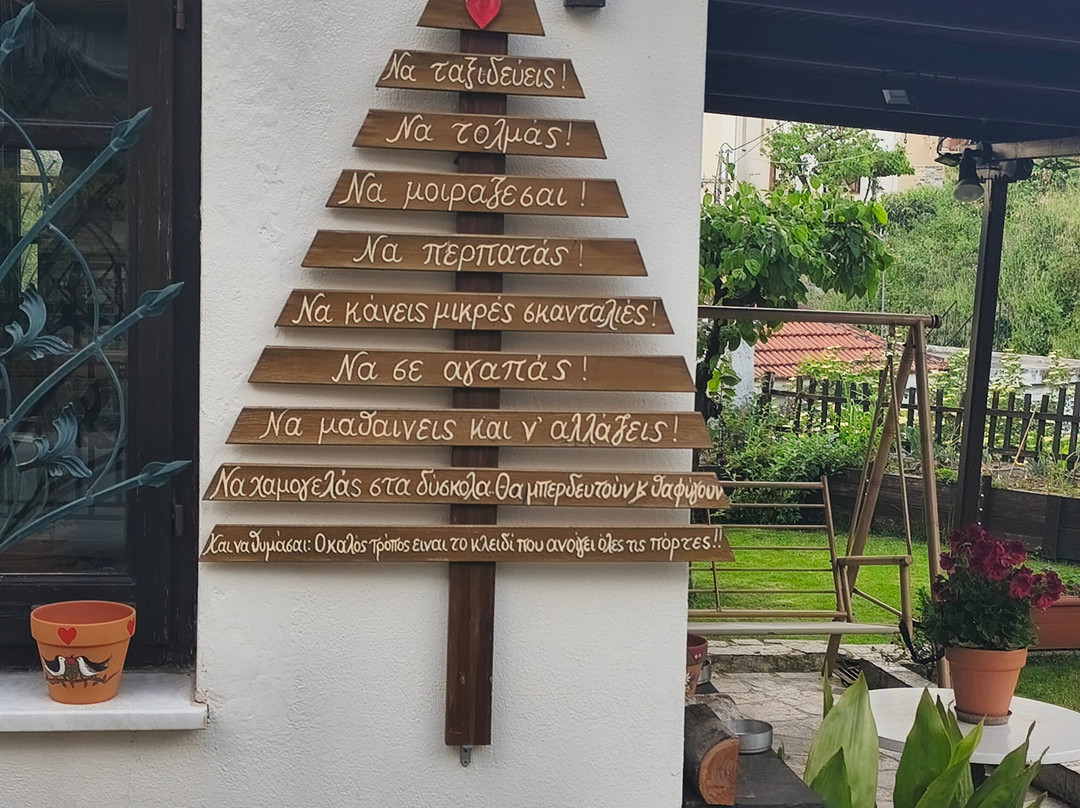 Να ταξιδεύεις!
Να τολμάς!
Να μοιράζεσαι!
Να περπατάς!
Να κάνεις μικρές σκανταλιές!
Να σε αγαπάς!
Να μαθαινεις και ν' αλλάξεις!
Να χαμογελάς στα δύσκολα. Θα μπερδευτούν & θα φύγουν
Και να θυμάσαι: Ο καλός τρόπος ειναι το κλειδί που ανοίγει όλες τις πόρτες!!